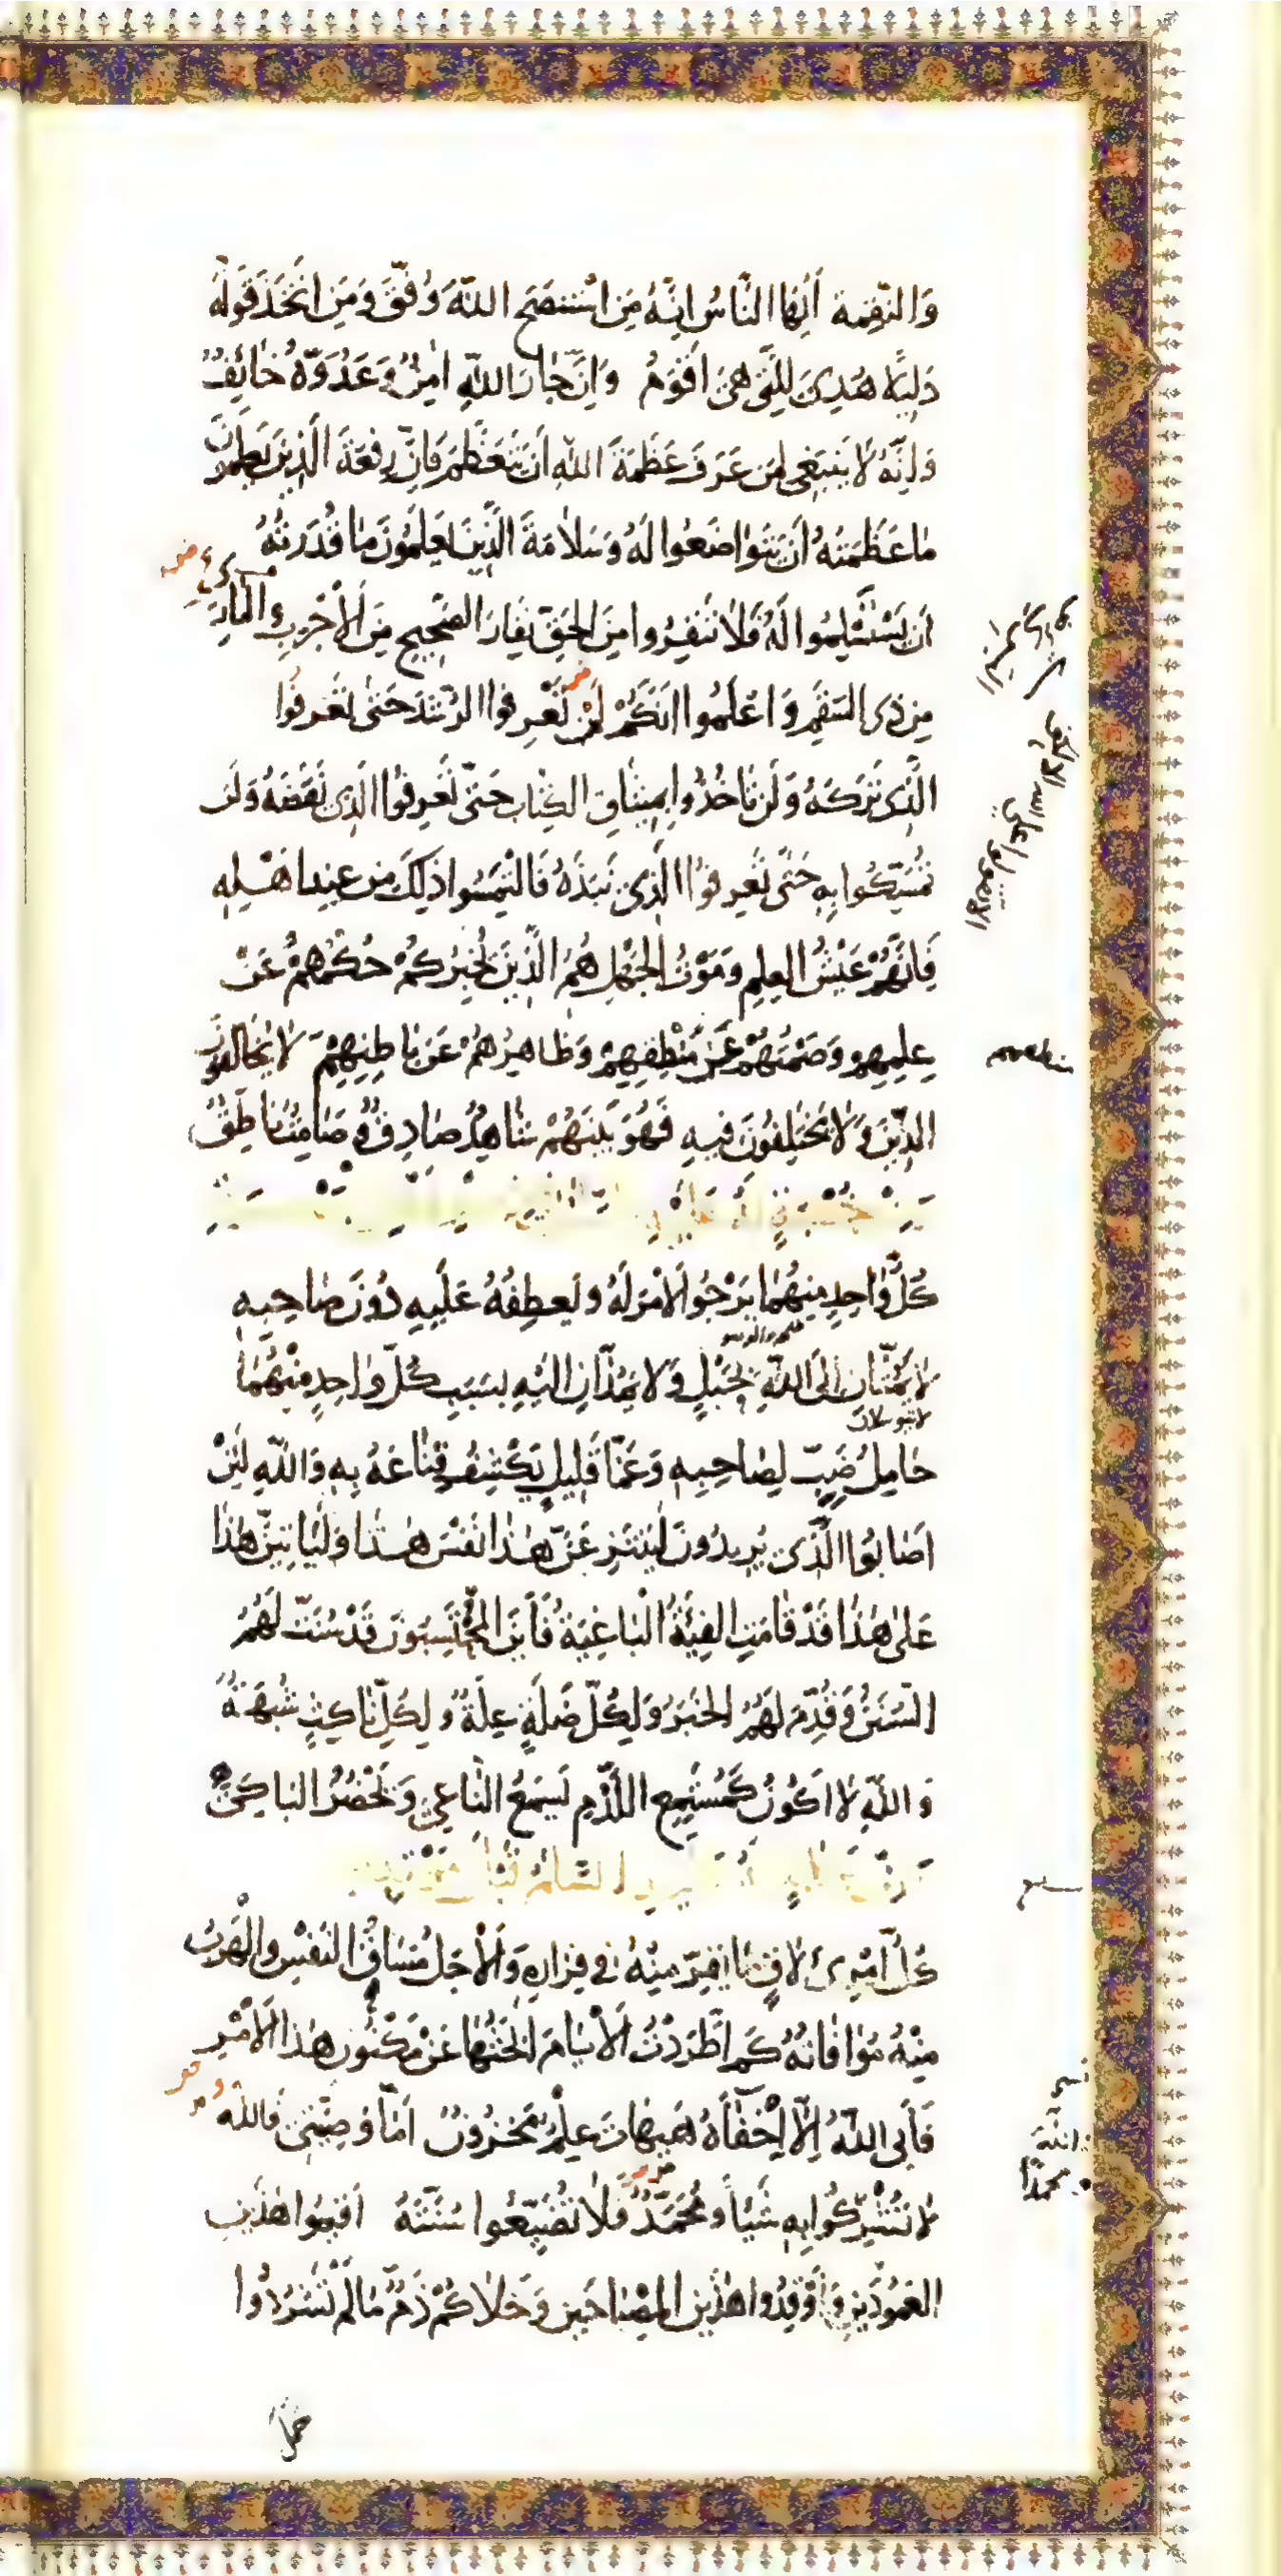 وَالنِّقِمَة أَيُّهَا النَّاسُ اِنَّهُ مَنِ اسْتَنصَحَ اللّهَ وُفِّقَ وَمَنِ اتَّخَذَ قَوْلَهُ
دَلِيلًا هُدِىَ لِلَّتى هِىَ اَقْوَمُ وَاِنَّ جٰارَ اللّهِ اٰمِنٌ وَعَدُوَّهُ خٰائِفٌ
وَاِنَّهُ لَا يَنبَغى لِمَن عَرَفَ عَظَمَةَ اللّهِ اَن يَتَعَظَّمَ فَاِنَّ رِفعَةَ الَّذِينَ يَعلَمُونَ
مٰا عَظَمَتُهُ اَن يَتَوٰاضَعُوا لَهُ وَسَلٰامَةَ الَّذِينَ يَعلَمُونَ مٰا قُدرَتُهُ
اَن يَسْتَسْلِمُوا لَهُ فَلٰا تَنفِرُوا مِنَ الحَقِّ نِفَارَ الصَّحِيحِ مِنَ الْاَجْرَبِ وَالبٰارِىِ
مِن ذِى السَّقَمِ وَاعْلَمُوا اَنَّكُمْ لَنْ تَعْرِفُوا الرُّشدَ حَتىّٰ تَعْرِفُوا
الَّذِى تَرَكَهُ وَلَن تٰاخُذُوا بِمِيثٰاقِ الكِتٰابِ حَتىّٰ تَعرِفُوا الَّذِى نَقَضَهُ وَلَن
تَمَسَّكُوا بِهِ حَتىّٰ تَعرِفُوا الَّذِى نَبَذَهُ فَالْتَمِسُوا ذٰلِكَ مِن عِندِ اَهْلِهِ
فَاِنَّهُمْ عَيْشُ العِلمِ وَمَوْتُ الجَهْلِ هُمُ الَّذِينَ يُخبِرُكُمْ حُكْمُهُمْ عَنْ
عِلمِهِمْ وَصَمْتُهُمْ عَنْ مَنْطِقِهِمْ وَظٰاهِرُهُمْ عَن بٰاطِنِهِمْ لٰا يُخٰالِفُونَ
الدِّينَ وَلٰا يَختَلِفُونَ فِيهِ فَهُوَ بَينَهُمْ شٰاهِدٌ صٰادِقٌ وَصٰامِتٌ نٰاطِقٌ
كُلُّ وٰاحِدٍ مِنهُمٰا يَرْجُوا الْاَمْرَ لَهُ وَيَعطِفُهُ عَلَيهِ دُونَ صٰاحِبِهِ
لٰا يَمُتّٰانِ اِلَى اللّهِ بِحَبْلٍ وَلٰا يَمُدّٰانِ اِلَيْهِ بِسَبَبٍ كُلُّ وٰاحِدٍ مِنْهُمٰا
لا يتوسلان
حٰامِلُ ضَبٍّ لِصٰاحِبِهِ وَعَمّٰا قَلِيلٍ يُكْشَفُ قِنٰاعُهُ بِهِ وَاللّهِ لَئِنْ
اَصٰابُوا الَّذِى يُرِيدُونَ لَيَنتَزِعَنَّ هٰذٰا نَفْسَ هٰذٰا وَلَيَاتِيَنَّ هٰذٰا
عَلىٰ هٰذٰا قَدْ قٰامَتِ الفِئَةُ الْبٰاغِيَةُ فَاَينَ الْمُحْتَسِبُونَ قَدْ سُنَّتْ لَهُمُ
السُّنَنُ وَقُدِّمَ لَهُمُ الخَبَرُ وَلِكُلِّ ضَلَّةٍ عِلَّةٌ وَلِكُلِّ نٰاكِثٍ شُبْهَةٌ
وَاللّهِ لٰا اَكُونُ كَمُسْتَمِعِ اللَّدْمِ يَسمَعُ النّٰاعِىَ وَيَحْضُرُ البٰاكِىَ
السَّلٰامُ قَبْلَ مَوْتِهِ
كُلُّ امْرِىءٍ لاٰقٍ مٰا يَفِرُّ مِنْهُ فى فِرٰارِهِ وَالْاَجَلُ مَسٰاقُ النَّفْسِ وَالْهَرَبُ
مِنْهُ مُوٰافٰاتُهُ كَم اَطْرَدْتُ الْاَيّٰامَ اَبْحَثُهٰا عَنْ مَكْنُونِ هٰذَا الْاَمْرِ
فَاَبىَ اللّهُ اِلّٰا اِخْفٰاءَهُ هَيهٰاتَ عِلمٌ مَخْزُونٌ اَمّٰا وَصِيَّتى فَاللّهُ
لٰا تُشْرِكُوا بِهِ شَيْاً وَمُحَمَّدٌ فَلٰا تُضَيِّعُوا سُنَّتَهُ اَقِيمُوا هٰذَينِ
العَمُودَينِ وَاَوْقِدُوا هٰذَينِ المِصْبٰاحَينِ وَخَلٰاكُمْ ذَمٌّ مٰا لَمْ تَشْرُدُوا
محمدًا